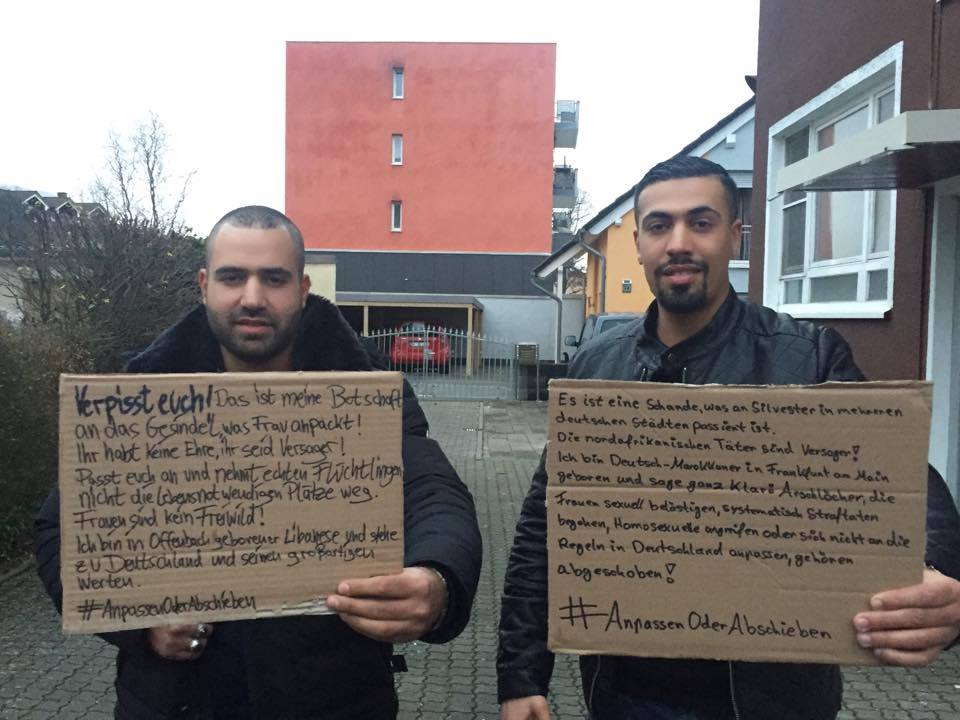 Verpisst euch! Das ist meine Botschaft
an das Gesindel, was Frau anpackt!
Ihr habt keine Ehre, ihr seid Versager!
Passt euch an und nehmt echten Flüchtlingen
nicht die lebensnotwendigen Plätze weg.
Frauen sind kein Freiwild!
Ich bin in Offenbach geborener Libanese und stehe
zu Deutschland und seinen großartigen
Werten.
#AnpassenOderAbschieben
Es ist eine Schande, was an Silvester in mehreren
deutschen Städten passiert ist.
Die nordafrikanischen Täter sind Versager!
Ich bin Deutsch-Marokkaner in Frankfurt am Main
geboren und sage ganz klar: Arschlöcher, die
Frauen sexuell belästigen, systematisch Straftaten
begehen, Homosexuelle angreifen oder sich nicht an die
Regeln in Deutschland anpassen, gehören
abgeschoben!
#AnpassenOderAbschieben